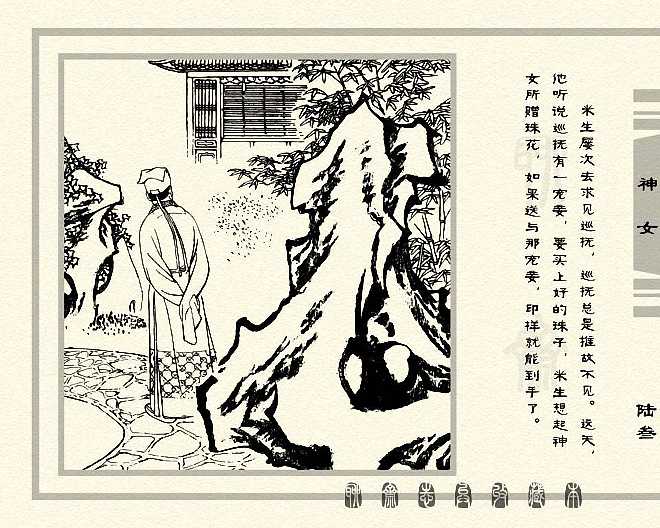 米生屡次去求见巡抚，巡抚总是推故不见。这天，
他听说巡抚有一宠妾，要买上好的珠子，米生想起神
女所赠珠花，如果送与那宠妾，即样就能到手了。
神女
陆叁
聊斋志异收藏本